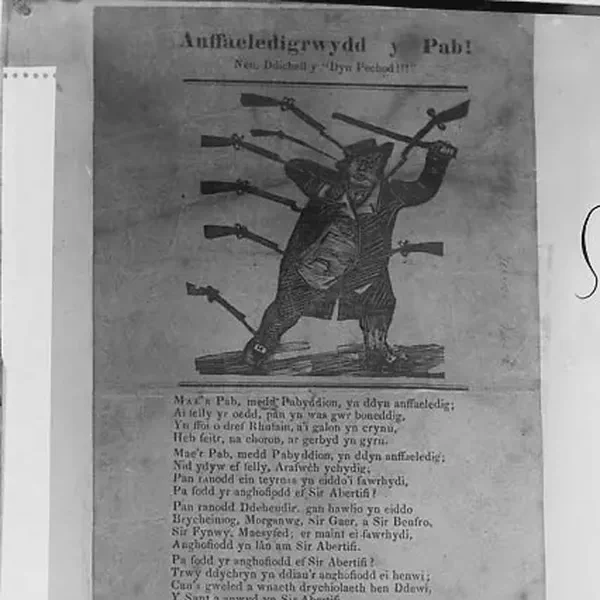 Anffaeledigrwydd y Pab!
Neu, Ddichell y "Dyn Pechod!!!"
MAE'R Pab, medd Pabyddion, yn ddyn anffaeledig;
Ai felly yr oedd, pan yn was gwr boneddig,
Yn ffoi o dref Rhufain, a'i galon yn crynu,
Heb feitr, na choron, ar gerbyd yn gyru.
Mae'r Pab, medd Pabyddion, yn ddyn anffaeledig;
Nid ydyw ef felly, Arafwch ychydig;
Pan ranodd ein teyrnas yn eiddo'i fawrhydi,
Pa fodd yr anghofiodd ef Sir Abertifi?
Pan ranodd Ddeheudir, gan hawlio yn eiddo
Brycheiniog, Morganwg, Sir Gaer, a Sir Benfro,
Sir Fynwy, Maesyfed; er maint ei fawrhydi,
Anghofiodd yn lân am Sir Abertifi.
Pa fodd yr anghofiodd ef Sir Abertifi?
Trwy ddychryn yn ddiau'r anghofiodd ei henwi;
Can's gweled a wnaeth drychiolaeth hen Ddewi,
Y Sant a anwyd yn Sir Abertifi.